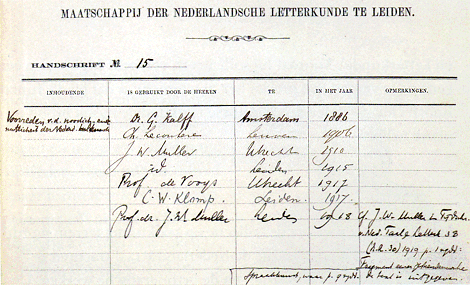 MAATSCHAPPIJ DER NEDERLANDSCHE LETTERKUNDE TE LEIDEN.
HANDSCHRIFT № 15
INHOUDENDE IS GEBRUIKT DOOR DE HEEREN TE IN HET JAAR OPMERKINGEN.
Dr. G. Kalff Amsterdam 1886
Ch. Lecoutere Leuven 1906
J W. Muller Utrecht 1910
id. Leiden 1915
Prof de Vooys Utrecht 1917
C. W. Klomp. Leiden. 1917.
Prof. dr. J. W. Muller Leiden 1918 Cf. J. W. Muller in Tijdschr.
Ned. Taal & Letterk 38
1919 p. 1
Fragment
de text is uitgegeven.